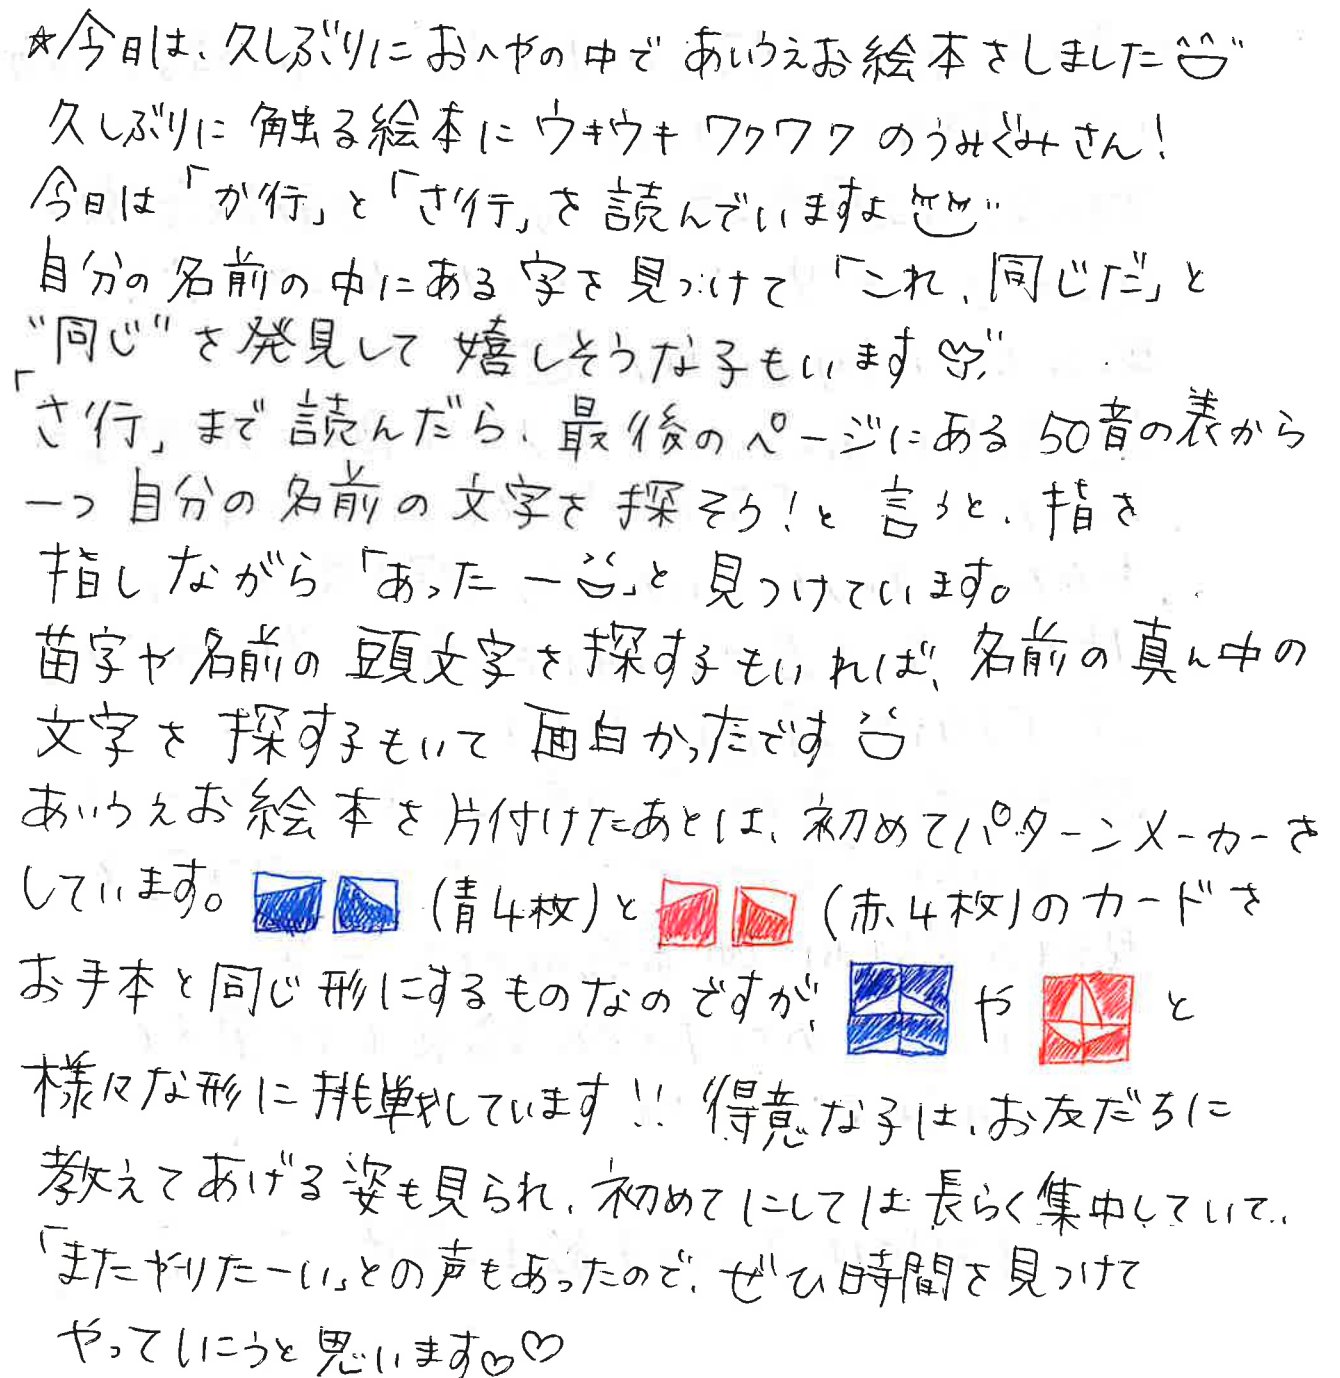 ☆今日は、久しぶりにおへやの中であいうえお絵本をしました
久しぶりに触る絵本にウキウキワクワクのうみぐみさん！
今日は「か行」と「さ行」を読んでいますよ
自分の名前の中にある字を見つけて「これ、同じだ」と
"同じ"を発見して嬉しそうな子もいます♡
「さ行」まで読んだら、最後のページにある50音の表から
一つ自分の名前の文字を探そう！と言うと、指を
指しながら「あったー」と見つけています。
苗字や名前の頭文字を探す子もいれば、名前の真ん中の
文字を探す子もいて面白かったです
あいうえお絵本を片付けたあとは、初めてパターンメーカーを
しています。(青4枚)と(赤4枚)のカードを
お手本と同じ形にするものなのですが、やと
様々な形に挑戦しています!! 得意な子は、お友だちに
教えてあげる姿も見られ、初めてにしては長らく集中していて、
「またやりたーい」との声もあったので、ぜひ時間を見つけて
やっていこうと思います♡♡